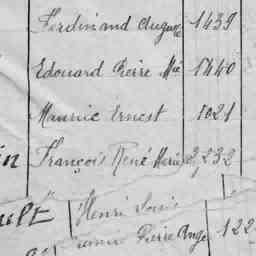 Ferdinand Auguste 1439
Edouard Pierre Mie 1440
Maurice Ernest 1021
in François René Marie 2,232
ault Henri Louis
Pierre Ange 122